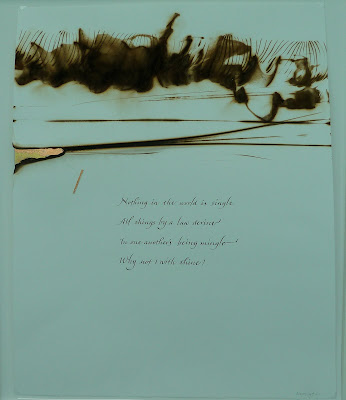 Nothing in the world is single
All things by a law divine
In one another's being mingle—
Why not I with thine?